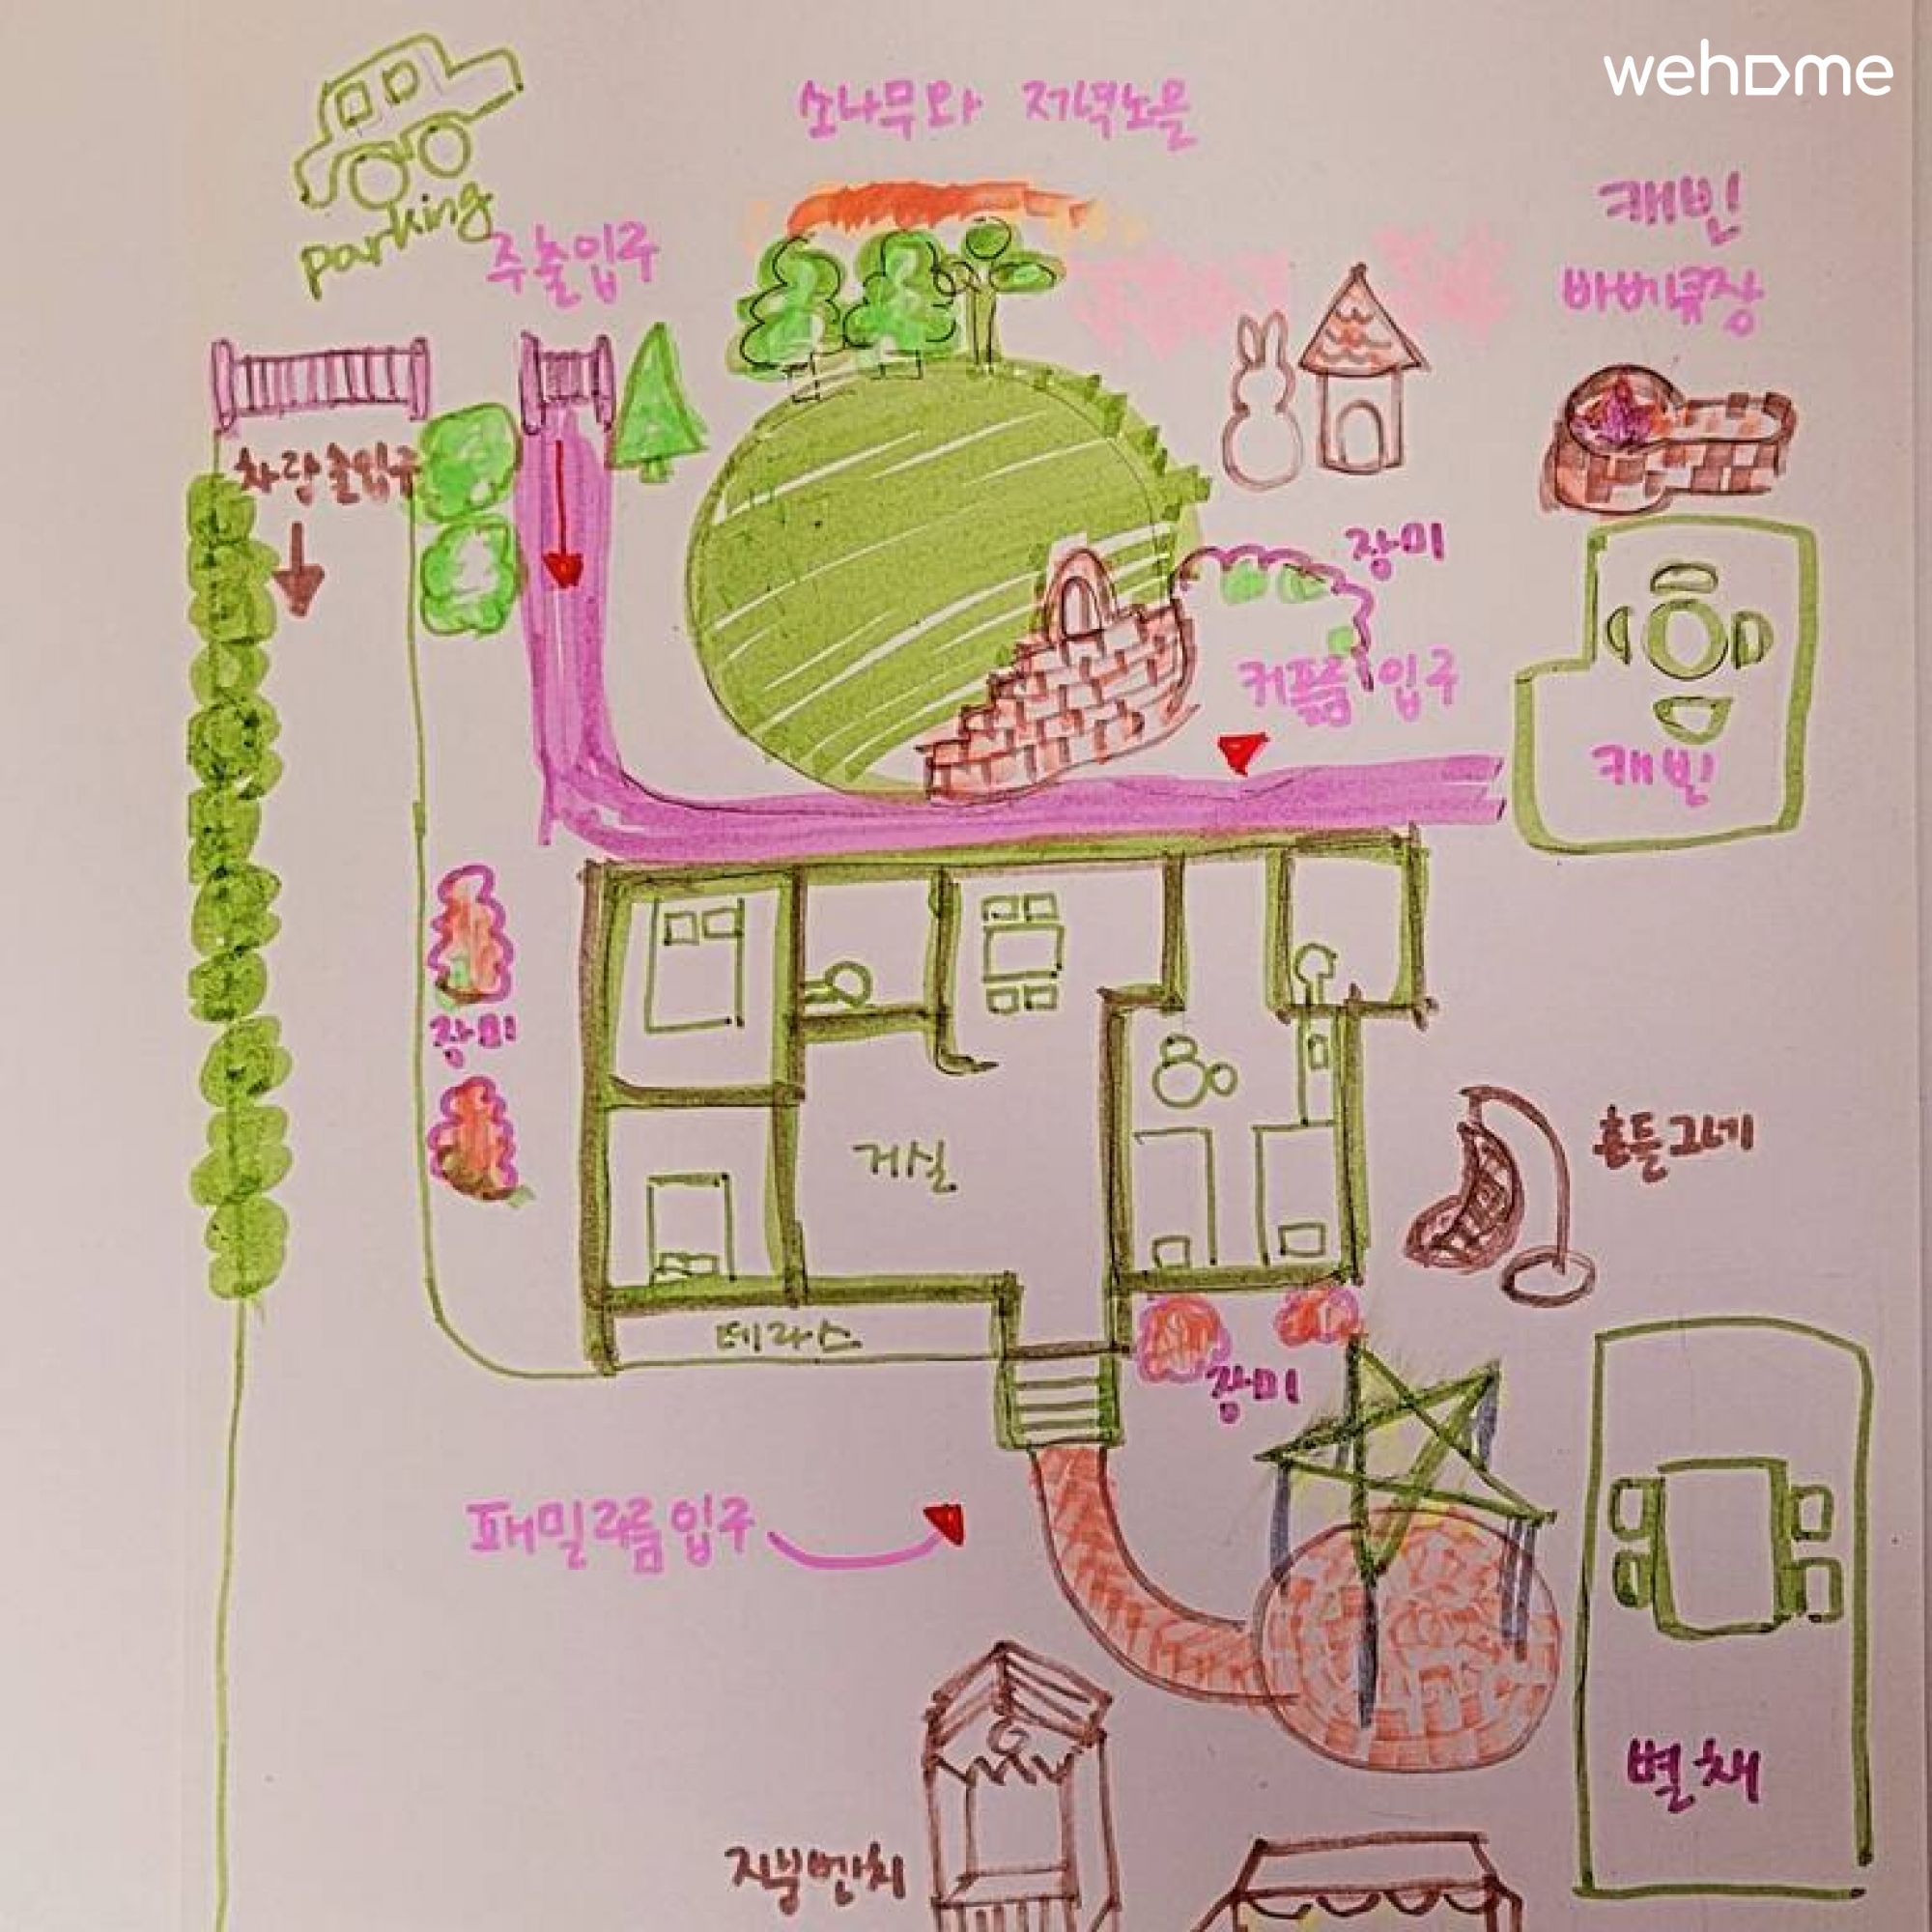 wehome
소나무와 저녁노을
parking
주출입구
캐빈
바베큐장
차량출입구
장미
커플룸입구
캐빈
장미
거실
흔들그네
테라스
장미
패밀리룸입구
별채
지붕벤치